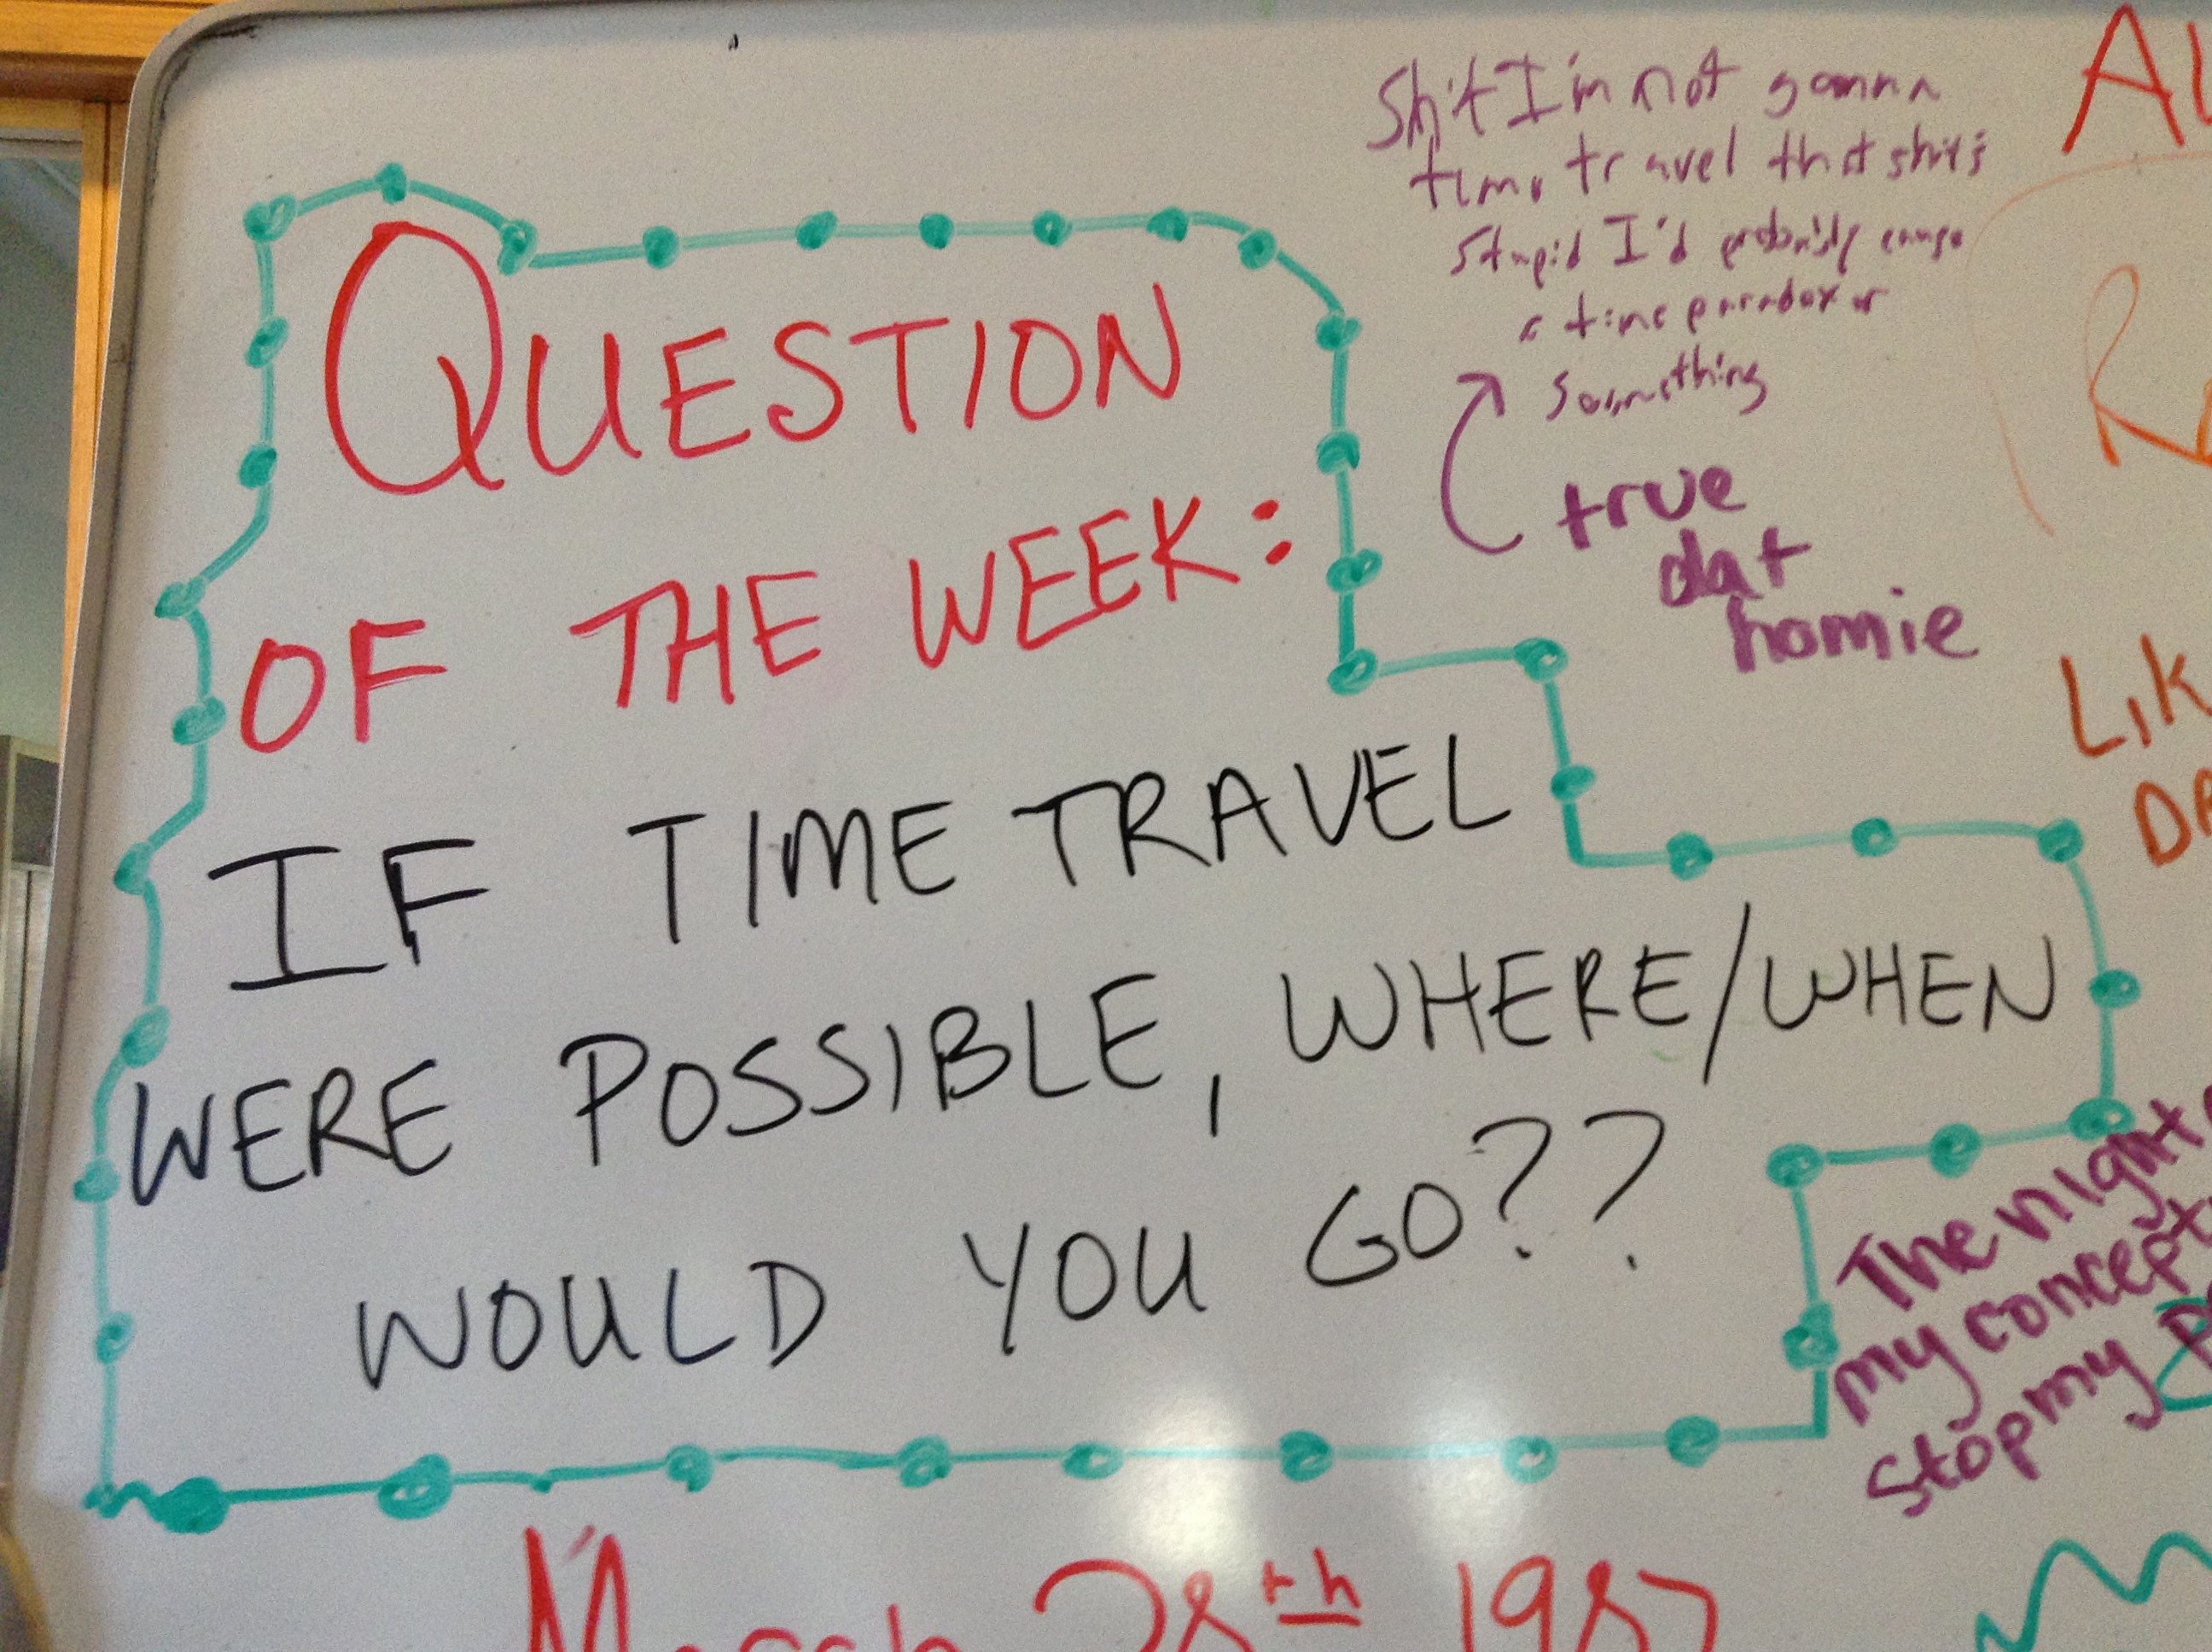 QUESTION
OF THE WEEK:
IF TIME TRAVEL
WERE POSSIBLE, WHERE/WHEN
WOULD YOU GO??
Shit I'm not gonna
time travel that shit's
stupid I'd probably cause
a time paradox or
something
true
dat
homie
The night
my concept
stop my
March 28th 1987